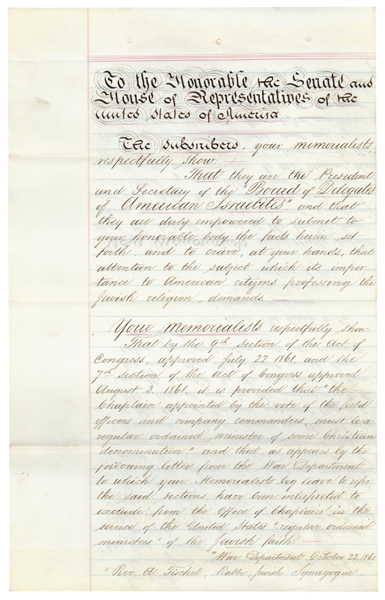 To the Honorable the Senate and
House of Representatives of the
United States of America
The Subscribers, your memorialists
respectfully show —
That they are the President
and Secretary of the "Board of Delegates
of American Israelites" and that
they are duly empowered to submit to
your honorable body the facts herein set
forth, and to crave, at your hands, that
attention to the subject which its impor-
tance to American citizens professing the
Jewish religion, demands.
Your Memorialists respectfully show
That by the 9th Section of the Act of
Congress, approved July 22. 1861 and the
7th section of the Act of Congress approved
August 3. 1861. it is provided that "the
Chaplain appointed by the vote of the field
officers and company commanders, must be a
regular ordained minister of some Christian
denomination" and that as appears by the
following letter from the War Department,
to which your Memorialists beg leave to refer
the said sections have been interpreted to
exclude from the office of Chaplain in the
service of the United States "regular ordained
ministers" of the Jewish faith —
"War Department October 23. 1861
"Rev. A. Fischel, Rabbi Jewish Synagogue.